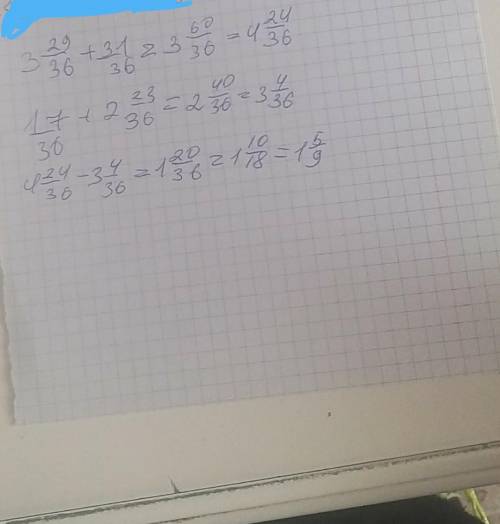 3 29/36 + 31/36 = 3 60/36 = 4 24/36
17/36 + 2 23/36 = 2 40/36 = 3 4/36
4 24/36 - 3 4/36 = 1 20/36 = 1 10/18 = 1 5/9